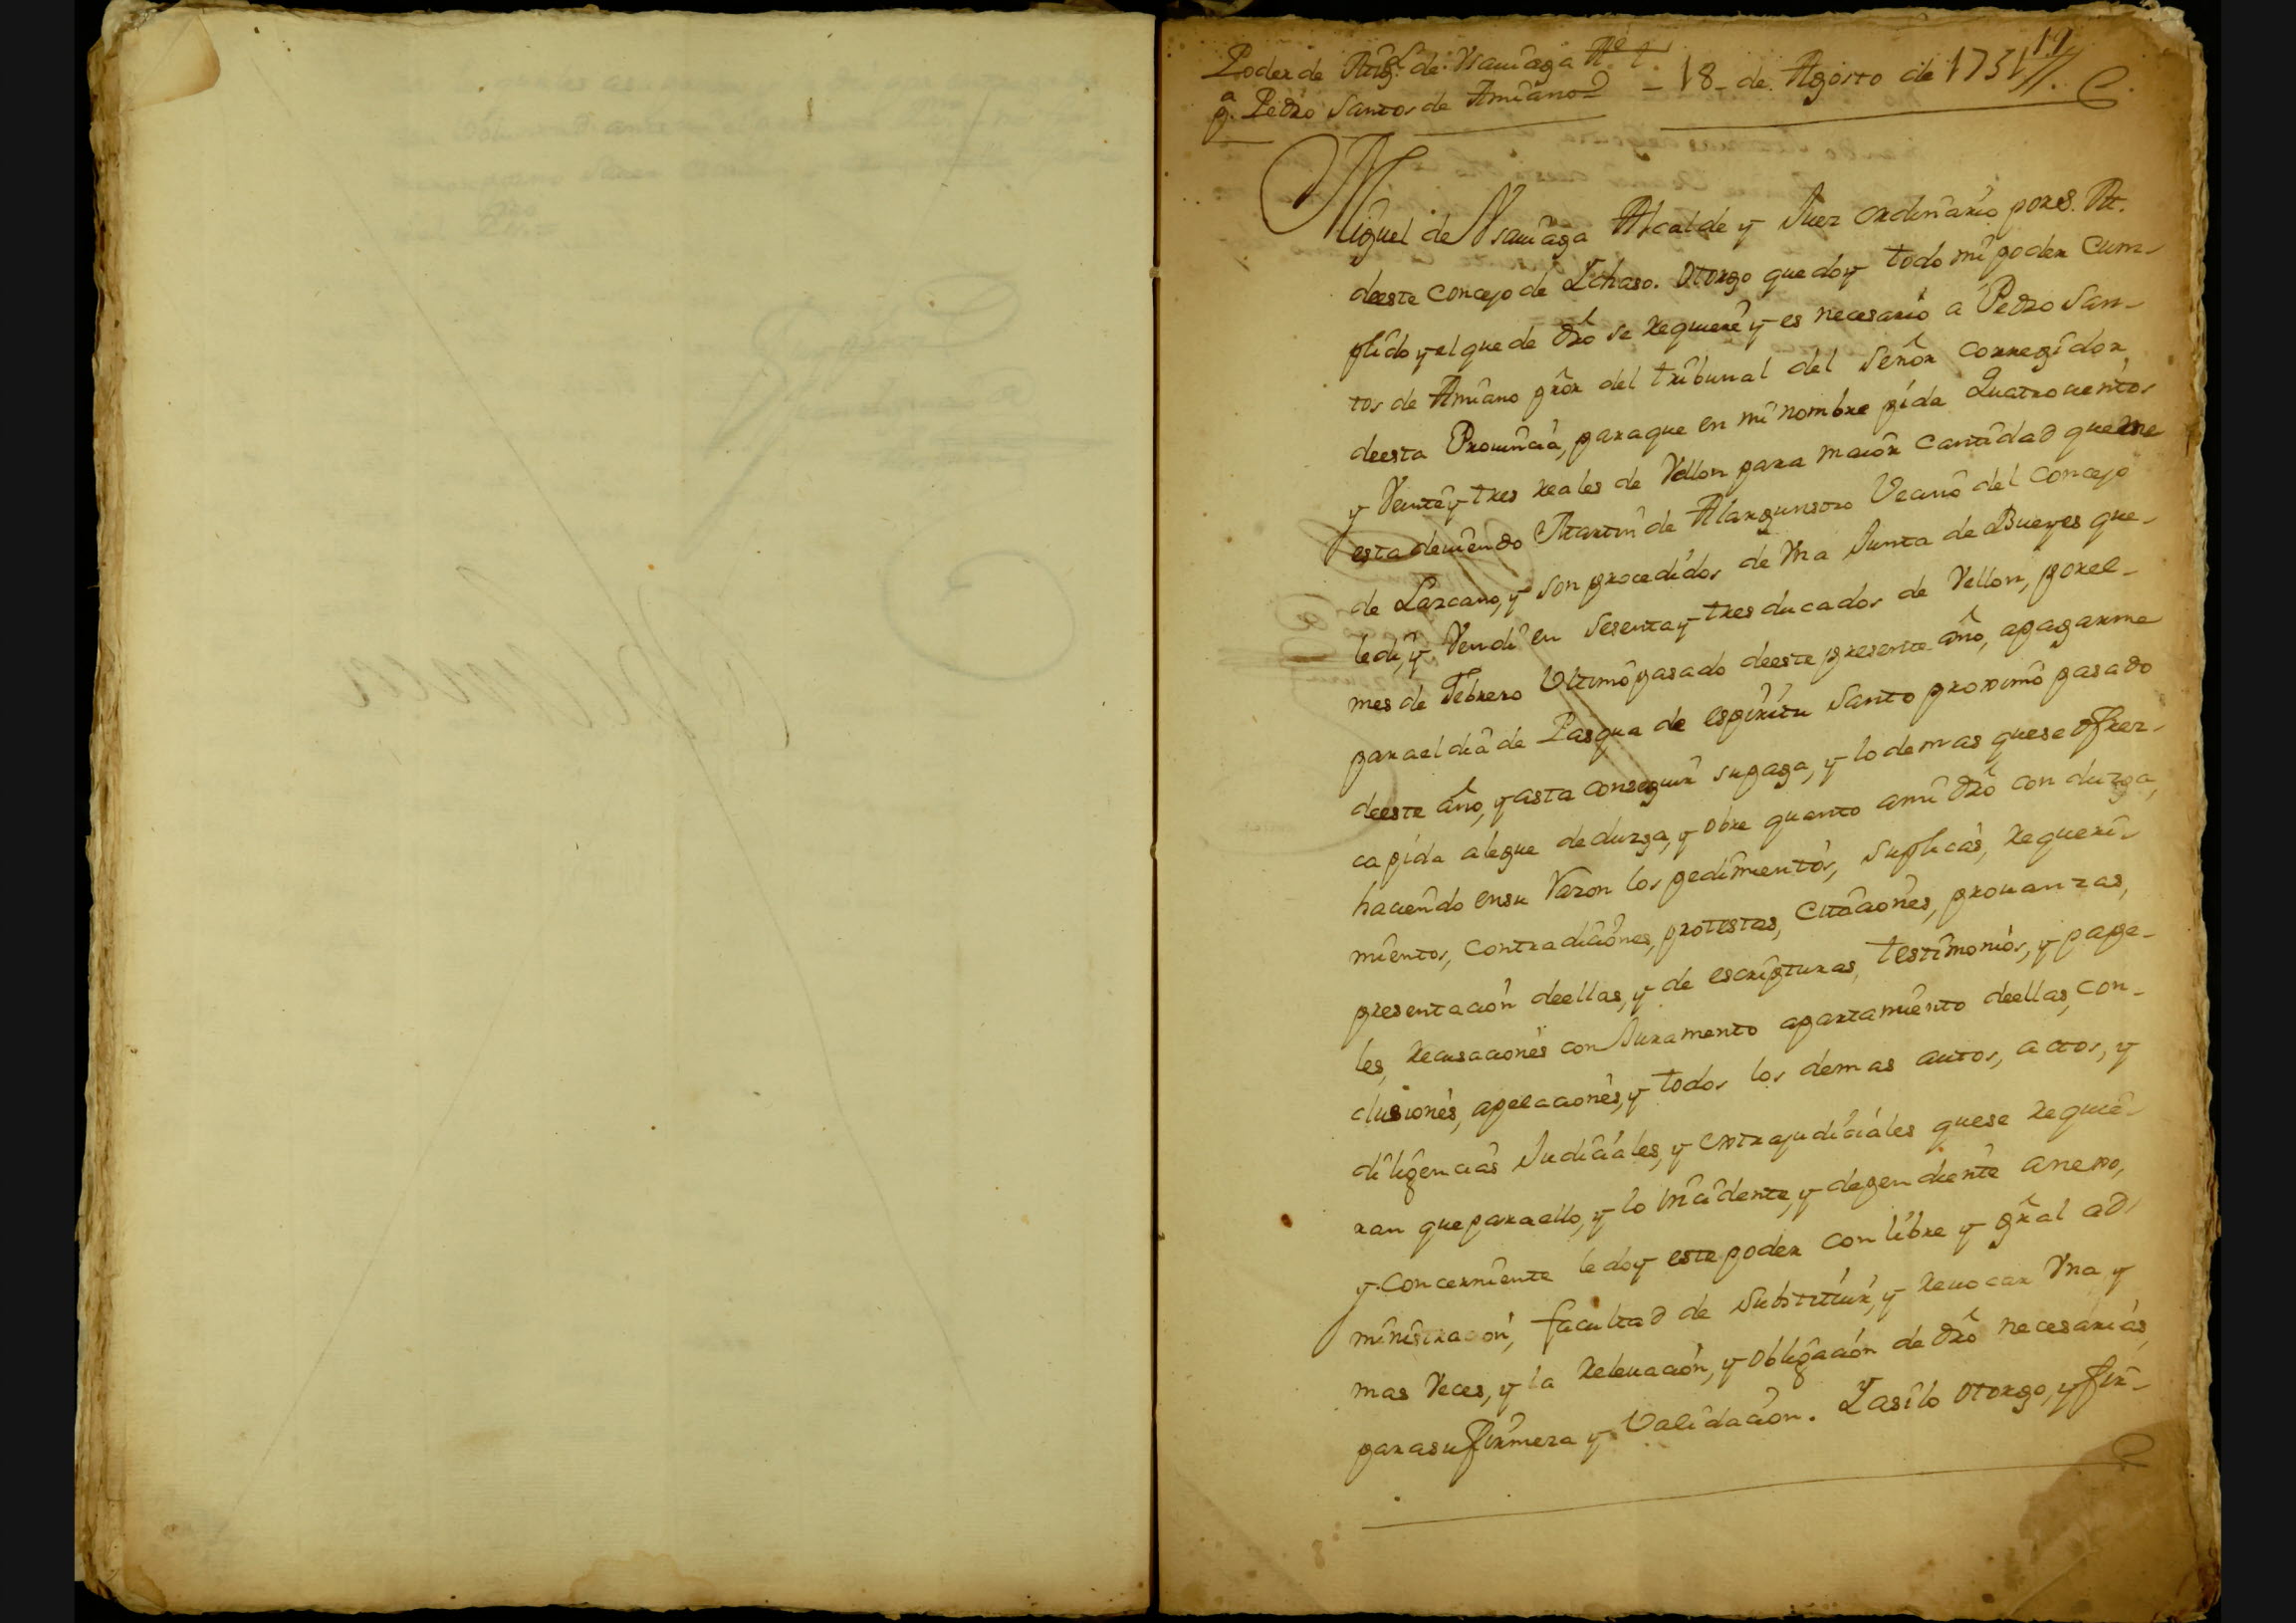 Poder de Mig.l de Ysauiaga A.e
p.a Pedro Santos de Amiano – 18 de Agosto de 1751
19
Miguel de Ysauiaga Alcalde y Juez ordinario por S. M.
deeste concejo de Ichaso. Otorgo que doy todo mi poder cum-
plido y el que de dro se requiere y es necesario a Pedro San-
tos de Amiano pror del tribunal del Señor corregidor
deesta Prouincia, paraque en mi nombre pida Quatrocientos
y Veinte y tres reales de Vellon para maior cantidad que me
esta deuiendo Martin de Alargunsoro Vecino del concejo
de Lazcano, y son procedidos de Vna Junta de Bueyes que-
le di, y Vendi en Sesenta y tres ducados de Vellon, por el-
mes de Febrero Vltimo pasado deeste presente año, apagarme
para el dia de Pasqua de espiritu Santo proximo pasado
deeste año, y asta conseguir su paga, y lo demas que se ofrez-
ca pida alegue deduzga, y obre quanto a mi dro conduzga,
haciendo ensu Razon los pedimientos, suplicas, requeri-
mientos, contradiciones, protestas, citaciones, prouanzas,
presentacion deellas, y de escripturas, testimonios, y pape-
les, recusaciones con Juramento apartamiento deellas, con-
clusiones, apelaciones, y todos los demas autos, actos, y
diligencias Judiciales, y extrajudiciales quese requie-
ran que para ello, y lo incidente, y dependiente anexo,
y concerniente le doy este poder con libre y gral ad-
ministracion, facultad de Substituir, y reuocar Vna y
mas Veces, y la releuacion, y obligacion de dro necesarias,
para su firmeza y Validacion. Y asi lo otorgo, y fir-